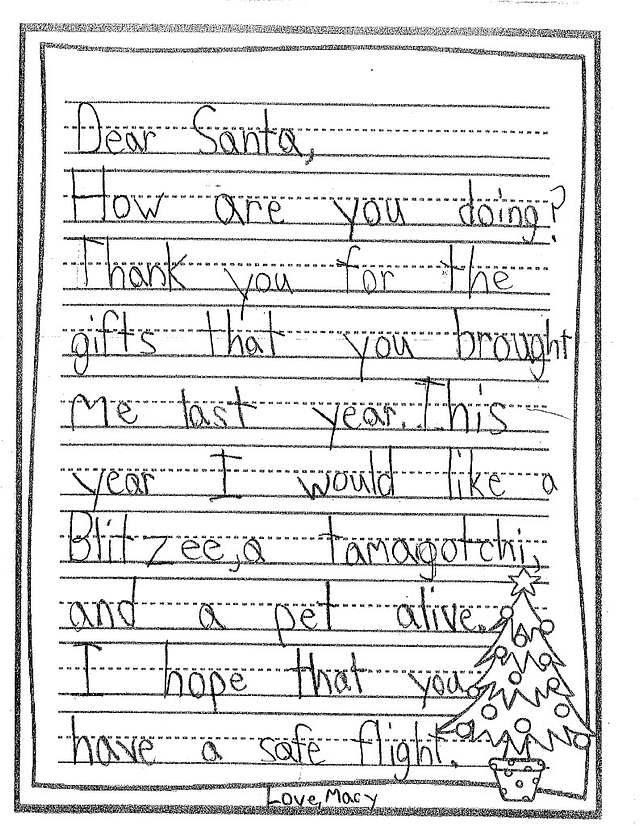 Dear Santa,
How are you doing?
Thank you for the
gifts that you brought
me last year. This
year I would like a
Blitzee, a tamagotchi,
and a pet alive.
I hope that you
have a safe flight.
Love, Macy